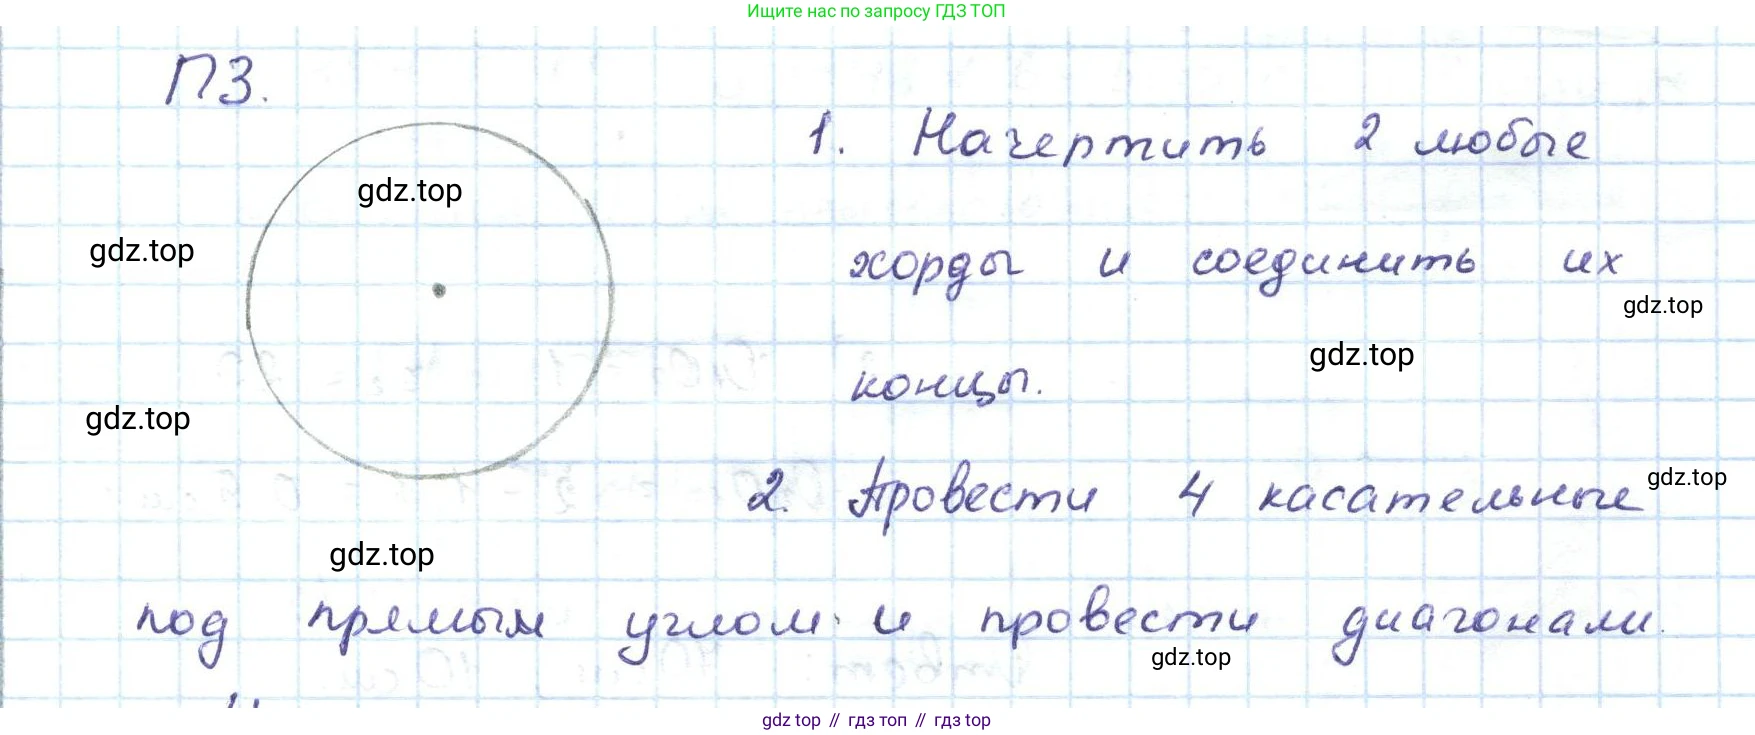 Ищите нас по запросу ГДЗ ТОП
ПЗ.
1. Начертить 2 любые
gdz.top
gdz.top
хорды и соединить их
gdz.top
gdz.top
концы.
gdz.top
2. Провести 4 касательные
gdz.top
gdz.top
под прямым углом и провести диагонали.
gdz.top
gdz top // гдз топ // гдз top